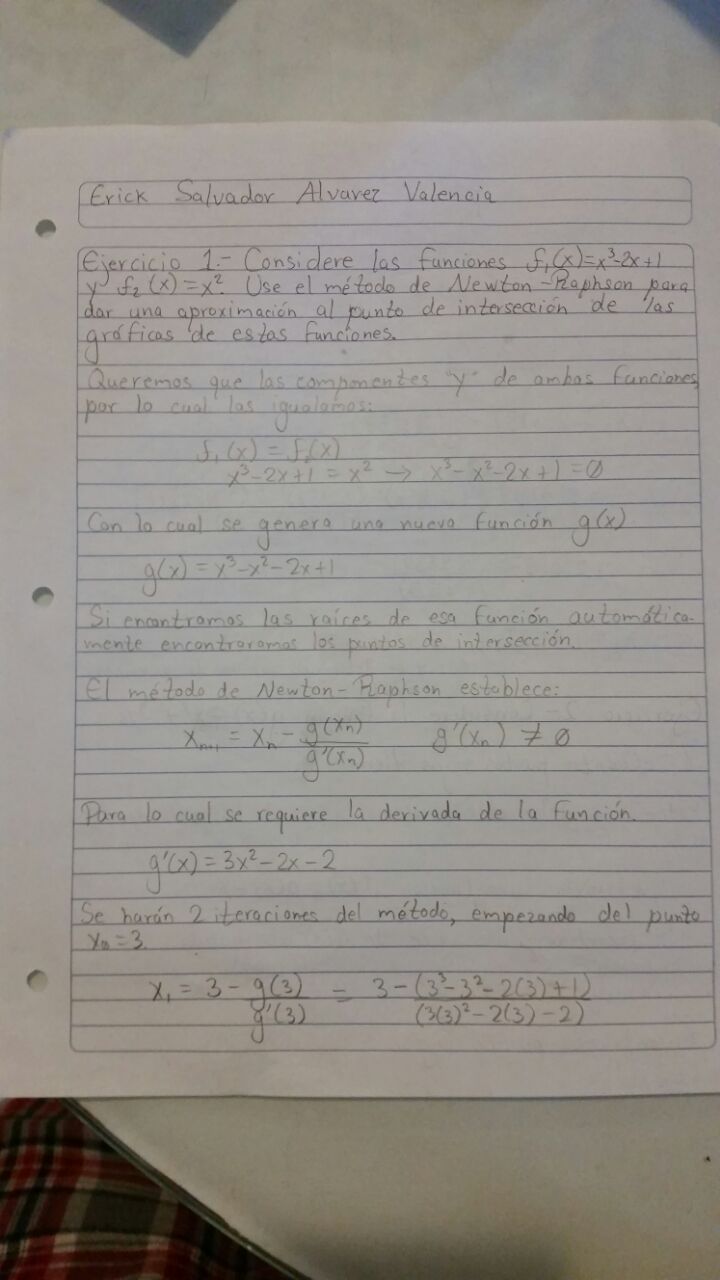 Erick Salvador Alvarez Valencia
Ejercicio 1.- Considere las funciones f₁(x)=x³-2x+1
y f₂(x)=x². Use el método de Newton-Raphson para
dar una aproximación al punto de intersección de las
gráficas de estas funciones.
Queremos que las componentes "y" de ambas funciones
por lo cual las igualamos:
f₁(x) = f₂(x)
x³-2x+1 = x² → x³-x²-2x+1=0
Con lo cual se genera una nueva función g(x)
g(x)=x³-x²-2x+1
Si encontramos las raíces de esa función automática-
mente encontraramos los puntos de intersección.
El método de Newton-Raphson establece:
xₙ₊₁ = xₙ - g(xₙ)/g'(xₙ) g'(xₙ) ≠ 0
Para lo cual se requiere la derivada de la función.
g'(x)=3x²-2x-2
Se harán 2 iteraciones del método, empezando del punto
x₀=3.
x₁ = 3 - g(3)/g'(3) = 3-(3³-3²-2(3)+1)/(3(3)²-2(3)-2)